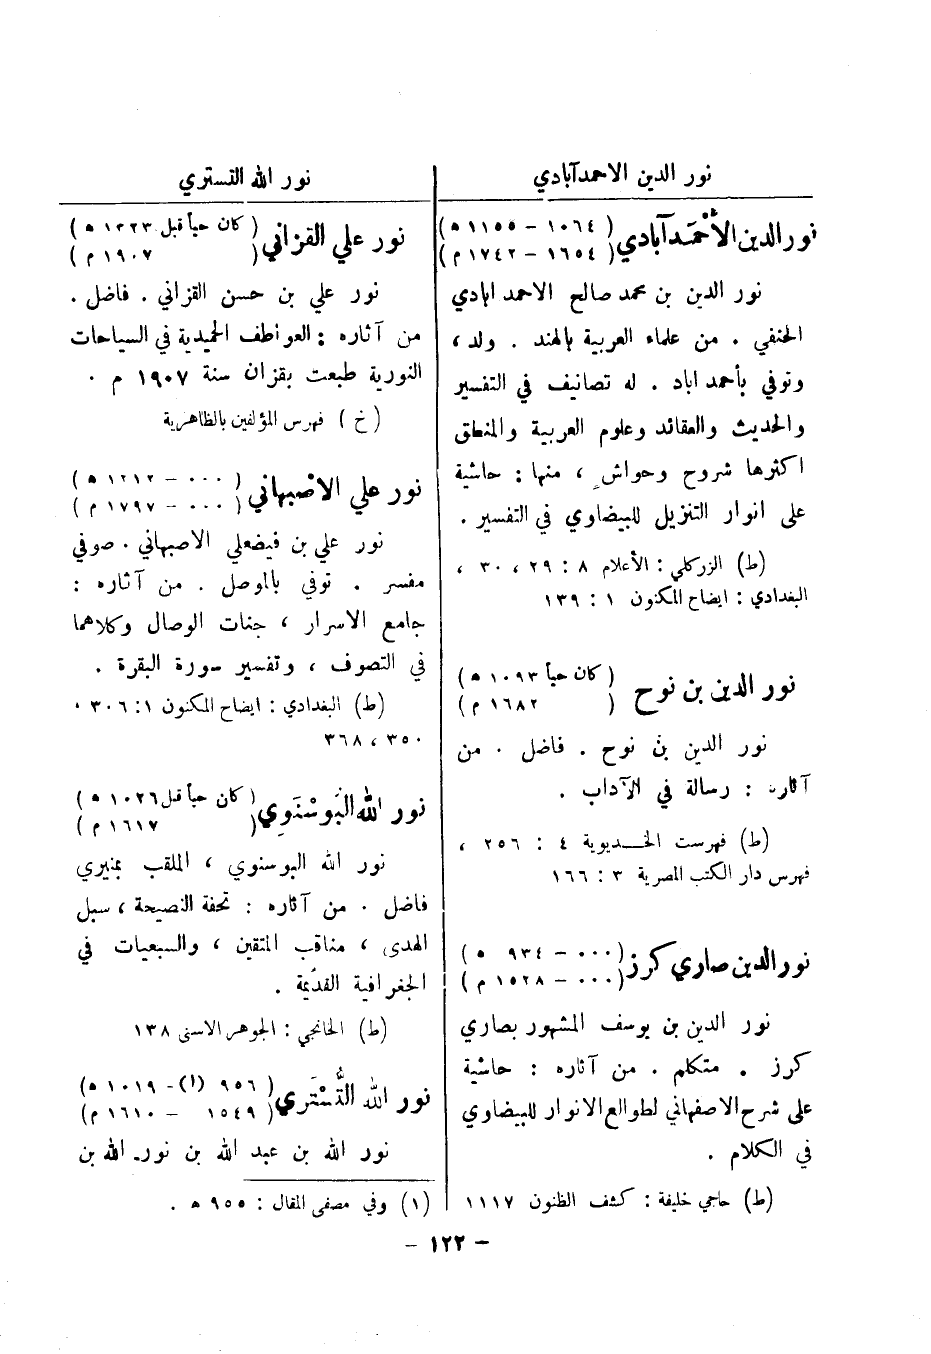 نور الدين الاحمدآبادي
نور الدين الأحْمَدآبادي ( ١٠٦٤ – ١١٥٥ ه )
( ١٦٥٤ – ١٧٤٢ م )
نور الدين بن محمد صالح الاحمد ابادي
الحنفي . من علماء العربية بالهند . ولد ،
وتوفي بأحمد اباد . له تصانيف في التفسير
والحديث والعقائد وعلوم العربية والمنطق
اكثرها شروح وحواشٍ ، منها : حاشية
على انوار التنزيل للبيضاوي في التفسير .
(ط) الزركلي : الأعلام ٨ : ٢٩ ، ٣٠ ،
البغدادي : ايضاح المكنون ١ : ١٣٩
نور الدين بن نوح ( كان حياً ١٠٩٣ ه )
( ١٦٨٢ م )
نور الدين بن نوح . فاضل . من
آثاره : رسالة في الآداب .
(ط) فهرست الخـديوية ٤ : ٢٥٦ ،
فهرس دار الكتب المصرية ٣ : ١٦٦
نور الدين صاري كرز (٠٠٠ – ٩٣٤ ه )
(٠٠٠ – ١٥٢٨ م )
نور الدين بن يوسف المشهور بصاري
كرز . متكلم . من آثاره : حاشية
على شرح الاصفهاني لطوالع الانوار للبيضاوي
في الكلام .
(ط) حاجي خليفة : كشف الظنون ١١١٧
نور الله التستري
نور علي القزاني ( كان حياً قبل ١٣٢٣ ه )
( ١٩٠٧ م )
نور علي بن حسن القزاني . فاضل .
من آثاره : العواطف الحميدية في السياحات
النورية طبعت بقزان سنة ١٩٠٧ م .
( خ ) فهرس المؤلفين بالظاهرية
نور علي الاصْبهاني ( ٠٠٠ – ١٢١٢ ه )
( ٠٠٠ – ١٧٩٧ م )
نور علي بن فيضعلي الاصبهاني . صوفي
مفسر . توفي بالموصل . من آثاره :
جامع الاسرار ، جنات الوصال وكلاهما
في التصوف ، وتفسير سورة البقرة .
(ط) البغدادي : ايضاح المكنون ١ : ٣٠٦ ،
٣٥٠ ، ٣٦٨
نور الله البَوسْنَوي ( كان حياً قبل ١٠٢٦ ه )
( ١٦١٧ م )
نور الله البوسنوي ، الملقب بمنيري
فاضل . من آثاره : تحفة النصيحة ، سبل
الهدى ، مناقب المتقين ، والسبعيات في
الجغرافية القديمة .
(ط) الخانجي : الجوهر الاسنى ١٣٨
نور الله التُّسْتَري ( ٩٥٦ (١) – ١٠١٩ ه )
( ١٥٤٩ – ١٦١٠ م )
نور الله بن عبد الله بن نور الله بن
(١) وفي مصفى المقال : ٩٥٥ ه .
– ١٢٢ –